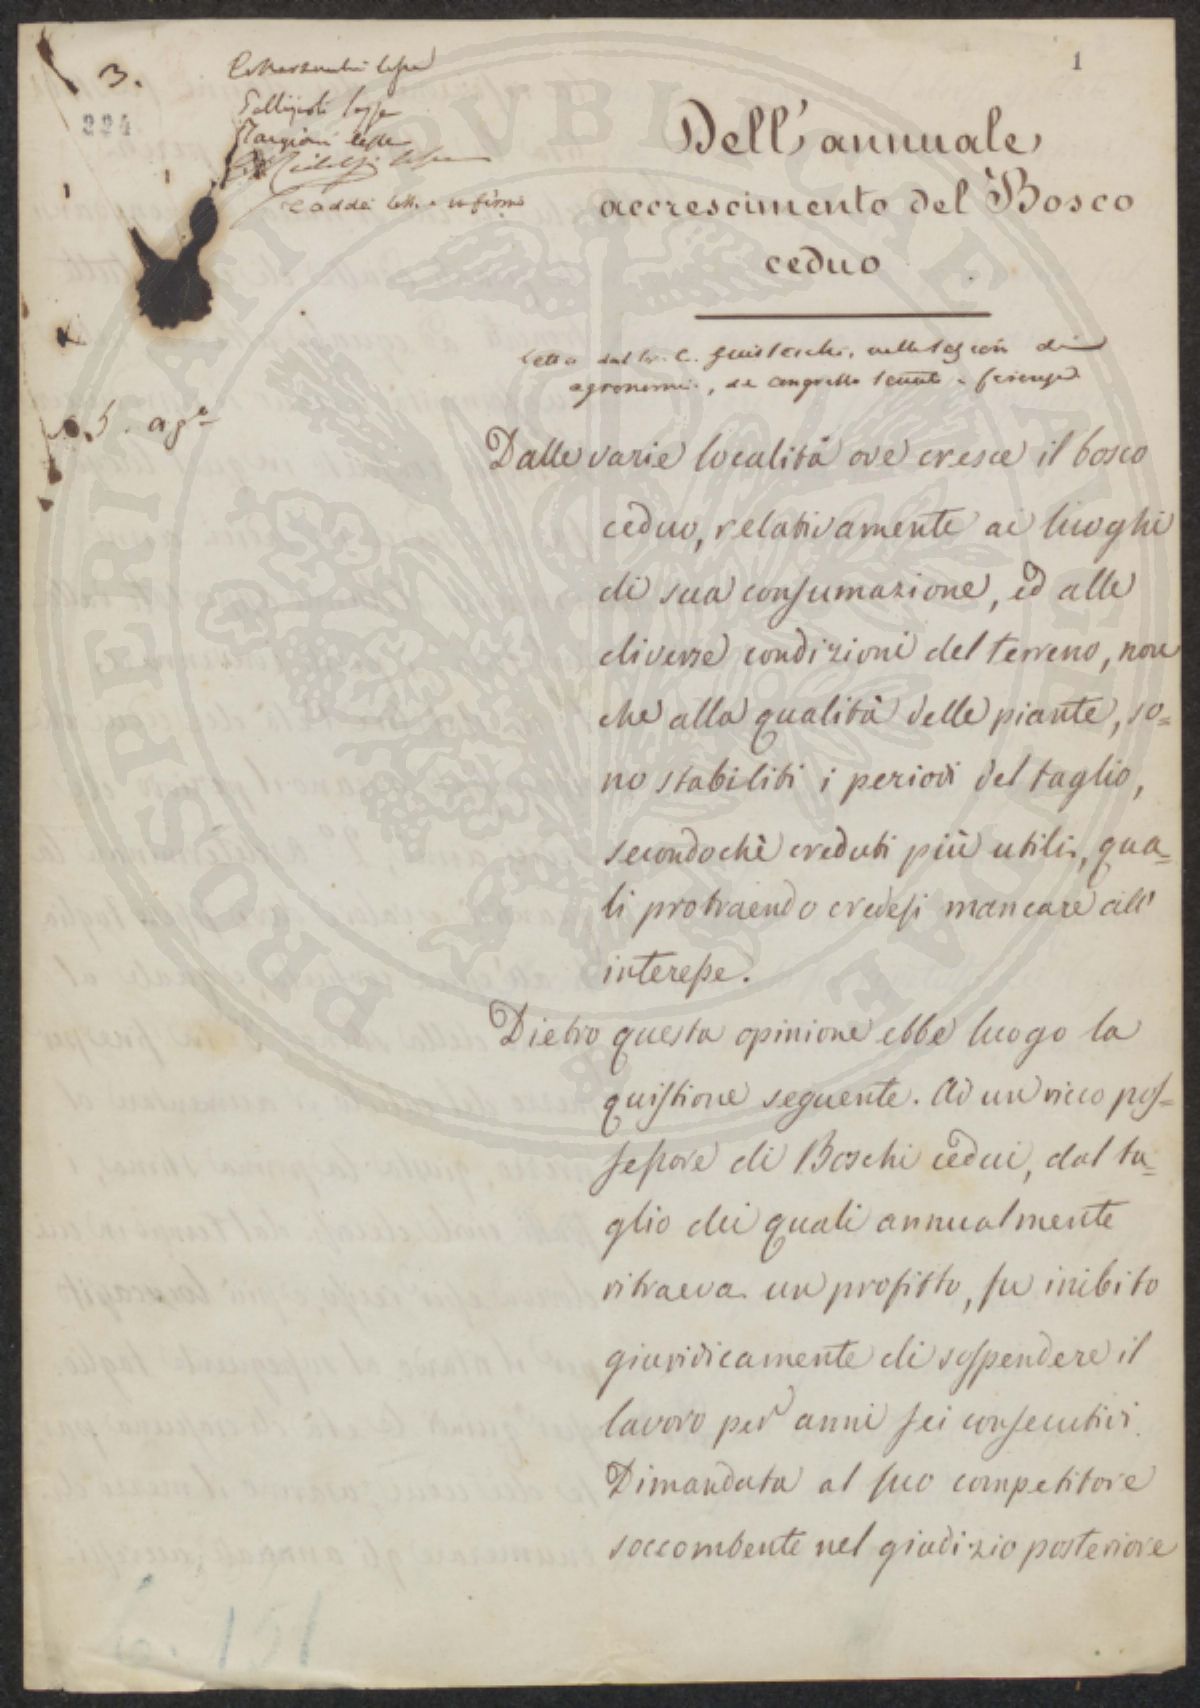 1
3.
224
Dell'annuale
accrescimento del Bosco
ceduo
5. ag.
Dalle varie località ove cresce il bosco
ceduo, relativamente ai luoghi
di sua consumazione, ed alle
diverse condizioni del terreno, non
che alla qualità delle piante, so=
no stabiliti i periodi del taglio,
secondochè creduti più utili, qua=
li protraendo credesi mancare all'
interesse.
Dietro questa opinione ebbe luogo la
quistione seguente. Ad un ricco pos=
sessore di Boschi cedui, dal ta=
glio dei quali annualmente
ritraeva un profitto, fu inibito
giuridicamente di sospendere il
lavoro per anni sei consecutivi.
Dimandata al suo competitore
soccombente nel giudizio posteriore
PROSPERITATI PUBLICAE AUGENDAE